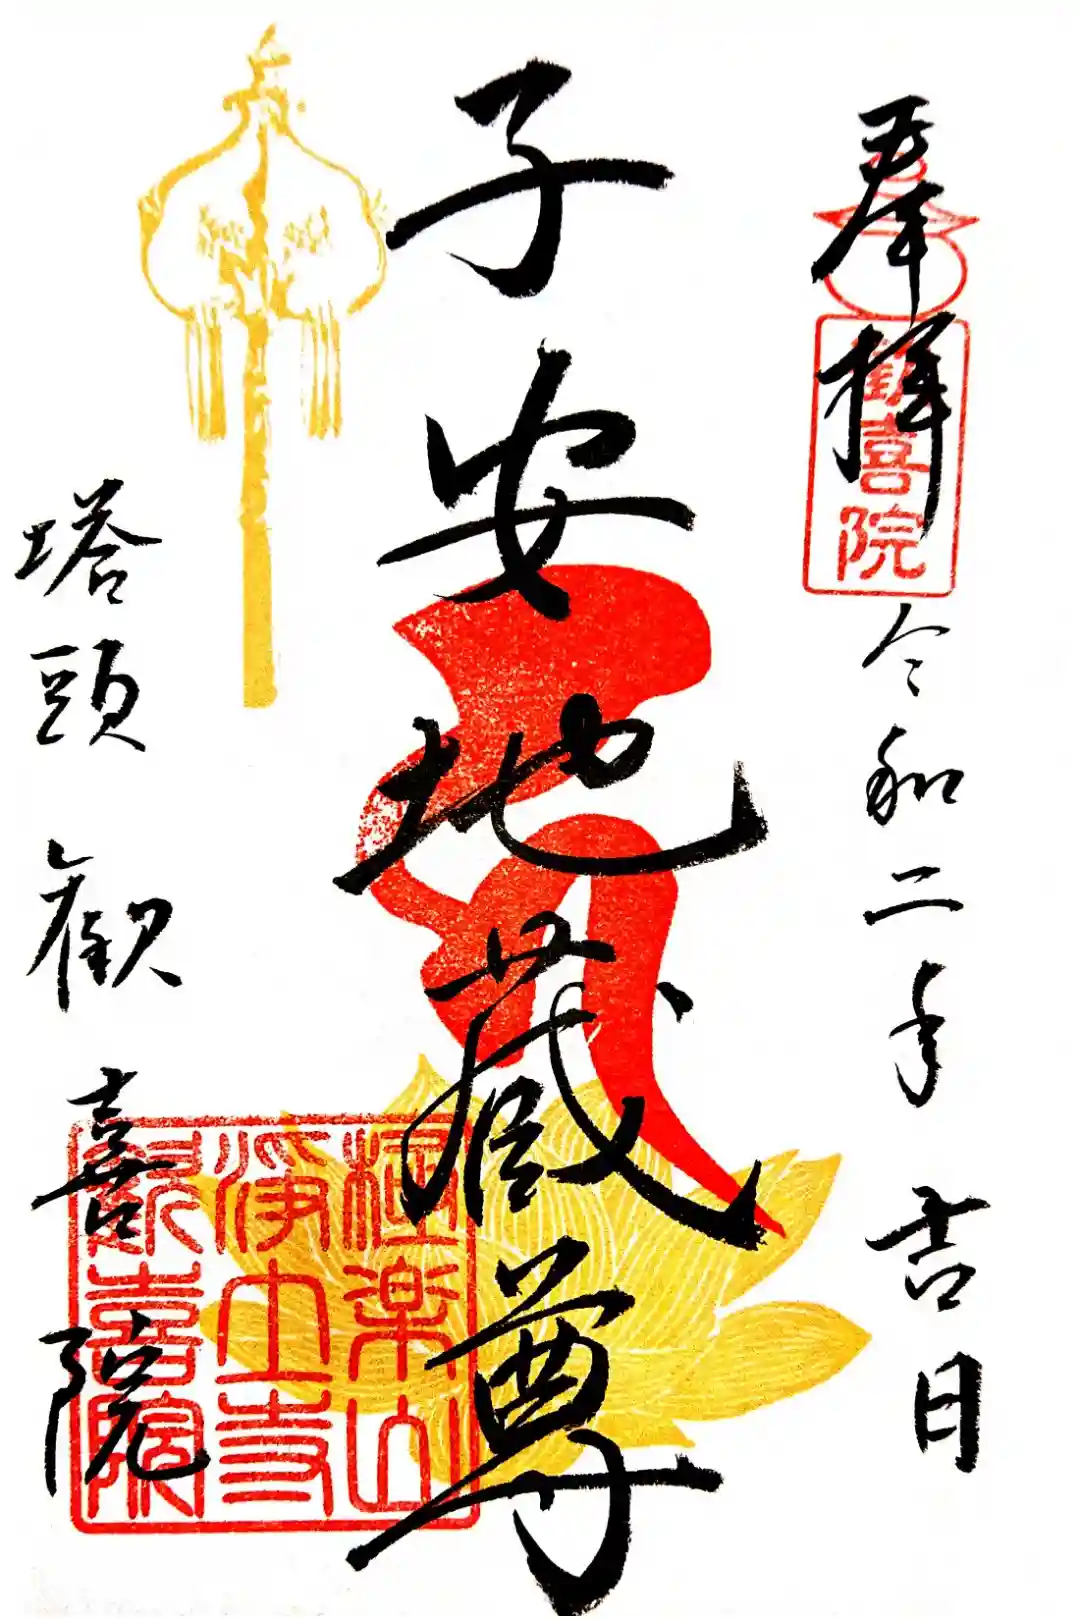 奉拝
歓喜院
令和二年吉日
子安地蔵尊
塔頭歓喜院
極楽山
浄土寺
歓喜院